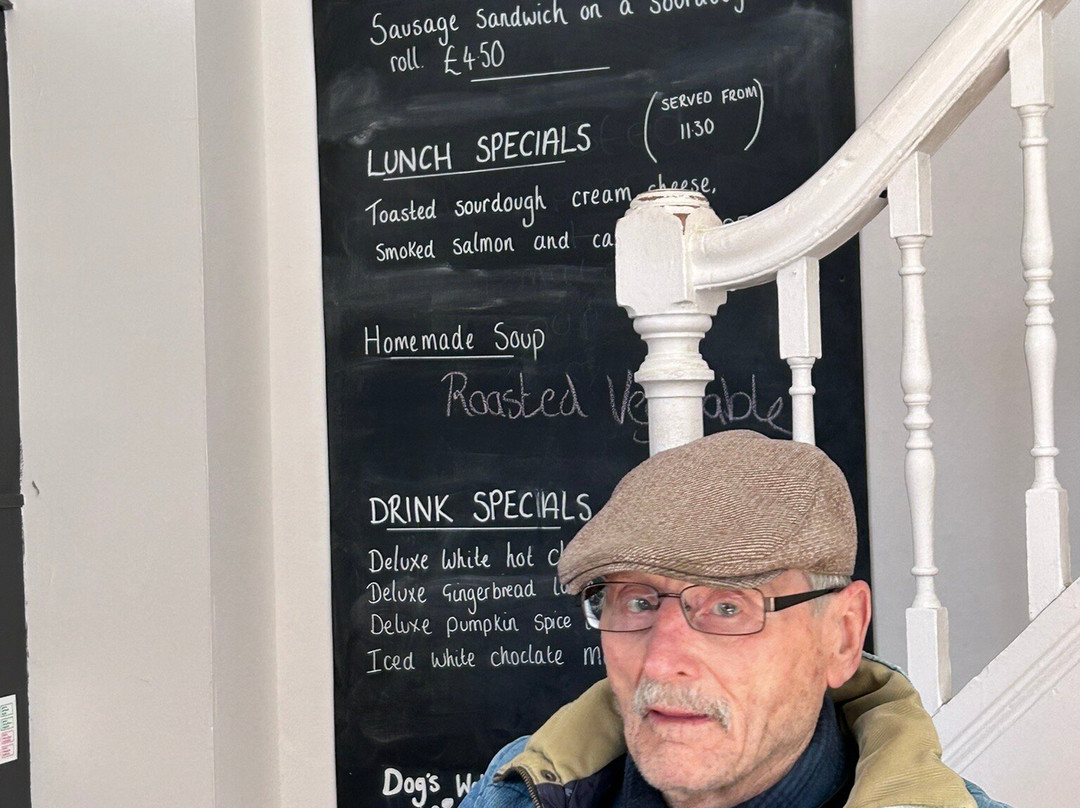 Sausage Sandwich on a Sourdough
roll. £4.50
LUNCH SPECIALS
(SERVED FROM
11.30)
Toasted sourdough cream cheese,
Smoked salmon and
Homemade Soup
Roasted
DRINK SPECIALS
Deluxe White hot
Deluxe Gingerbread
Deluxe Pumpkin Spice
Iced White choclate
Dog's